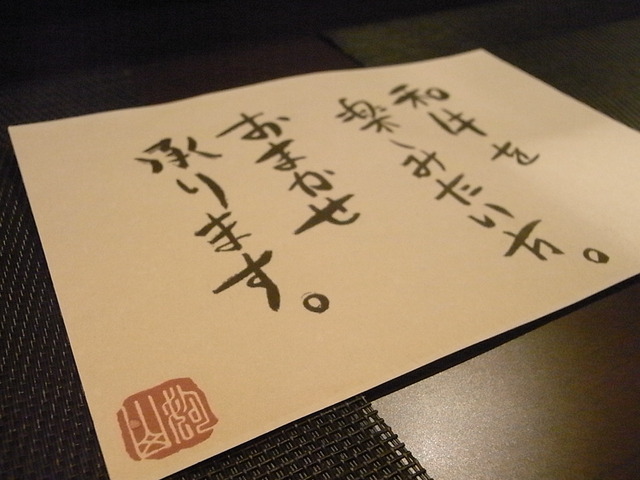 和牛を
楽しみたい方。
おまかせ
承ります。